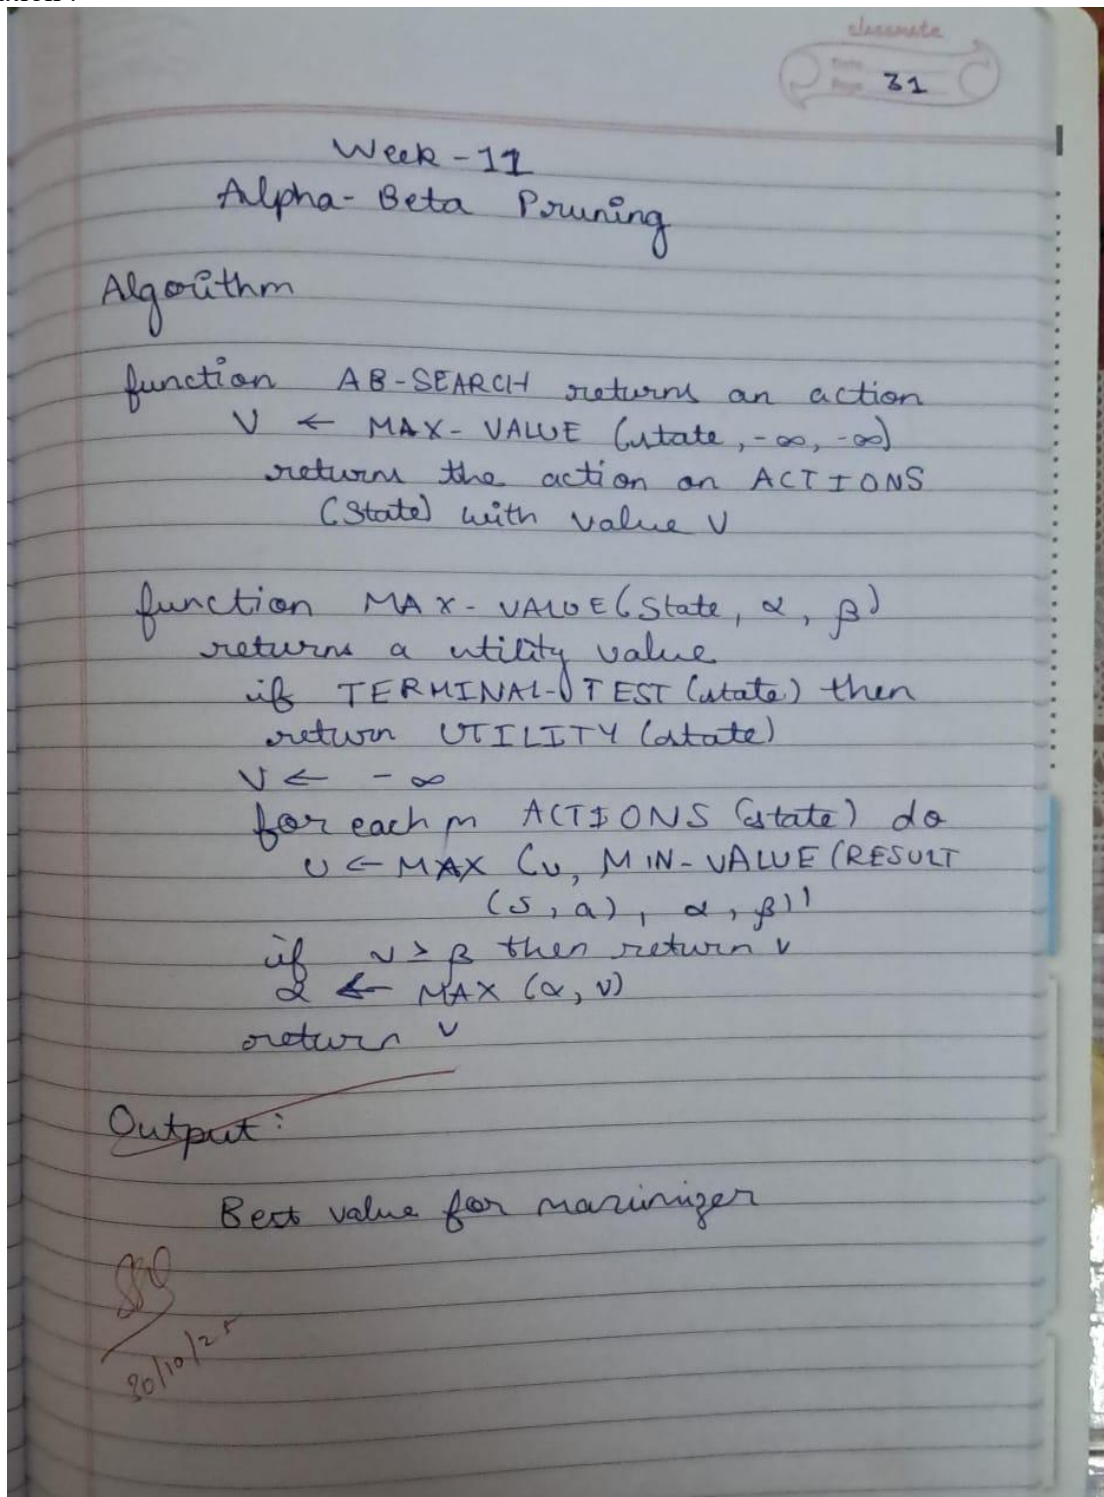 classmate
Date
Page 31
Week-11
Alpha-Beta Pruning
Algorithm
function AB-SEARCH returns an action
V ← MAX-VALUE (state, -∞, -∞)
returns the action on ACTIONS
(State) with value V
function MAX-VALUE (State, α, β)
returns a utility value
if TERMINAL-TEST (state) then
return UTILITY (state)
V ← -∞
for each in ACTIONS (state) do
v ← MAX (v, MIN-VALUE (RESULT
(s, a), α, β))
if v ≥ β then return v
α ← MAX (α, v)
return v
Output:
Best value for maximizer
30/10/25